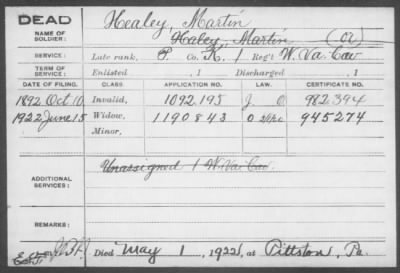 DEAD
NAME OF SOLDIER: Healey, Martin
Haley, Martin (or)
SERVICE: Late rank, P. Co. K, 1 Reg't W. Va. Cav
TERM OF SERVICE: Enlisted , 1 Discharged , 1
DATE OF FILING. CLASS APPLICATION NO. LAW. CERTIFICATE NO.
1892 Oct 10 Invalid, 1092.195 J. O 982.394
1922 June 15 Widow, 1190843 O 945274
Minor,
ADDITIONAL SERVICES: Unassigned 1 W. Va. Cav.
REMARKS:
Died May 1, 1922, at Pittston, Pa.